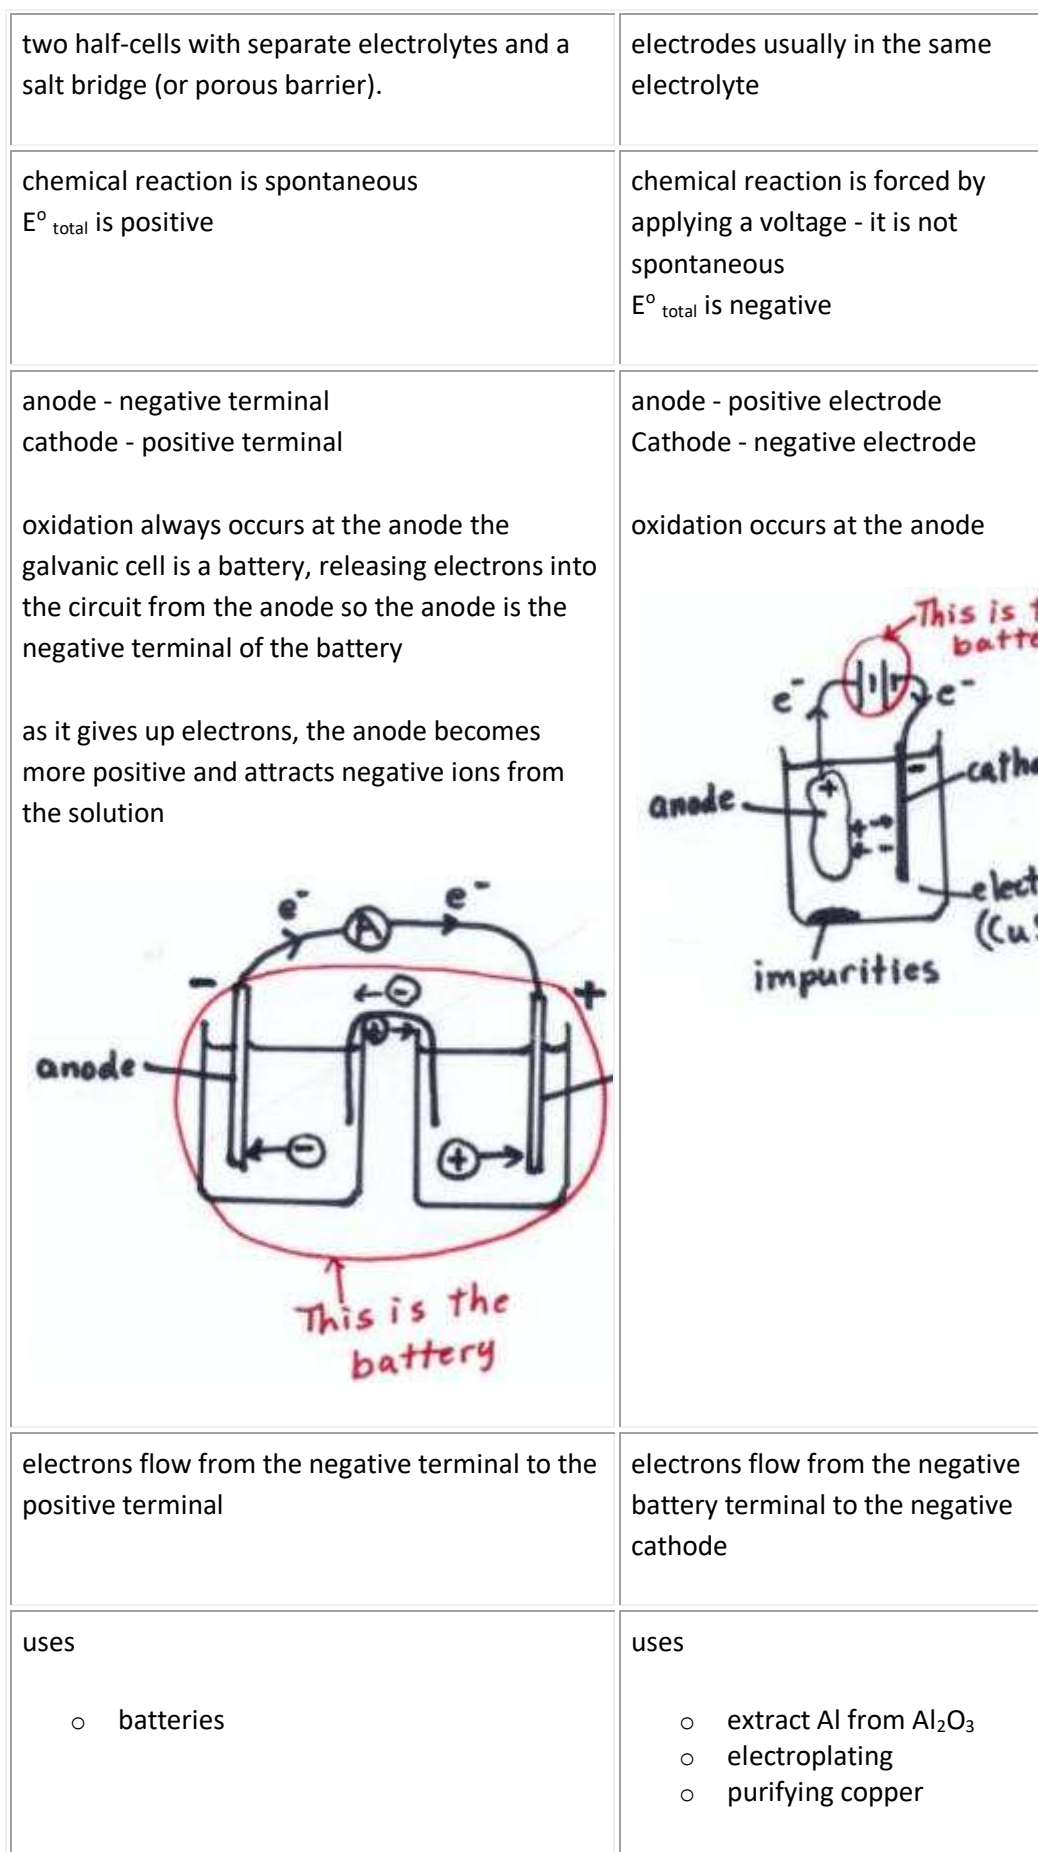 two half-cells with separate electrolytes and a
salt bridge (or porous barrier).
electrodes usually in the same
electrolyte
chemical reaction is spontaneous
E° total is positive
chemical reaction is forced by
applying a voltage - it is not
spontaneous
E° total is negative
anode - negative terminal
cathode - positive terminal
oxidation always occurs at the anode the
galvanic cell is a battery, releasing electrons into
the circuit from the anode so the anode is the
negative terminal of the battery
as it gives up electrons, the anode becomes
more positive and attracts negative ions from
the solution
e⁻ e⁻
A
- +
←⊖
⊕→
anode
- +
This is the
battery
anode - positive electrode
Cathode - negative electrode
oxidation occurs at the anode
This is
e⁻ e⁻
+ -
anode
+ →
← -
(Cu
impurities
electrons flow from the negative terminal to the
positive terminal
electrons flow from the negative
battery terminal to the negative
cathode
uses
o batteries
uses
o extract Al from Al₂O₃
o electroplating
o purifying copper